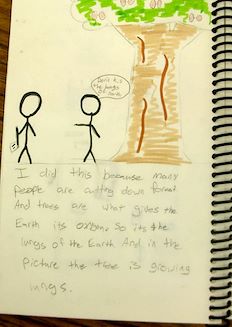 Don't kill
the lungs
of earth
I did this because many
People are cutting down forest
And trees are what gives the
Earth its oxygen. So its the
lungs of the Earth And in the
picture the tree is growing
lungs.